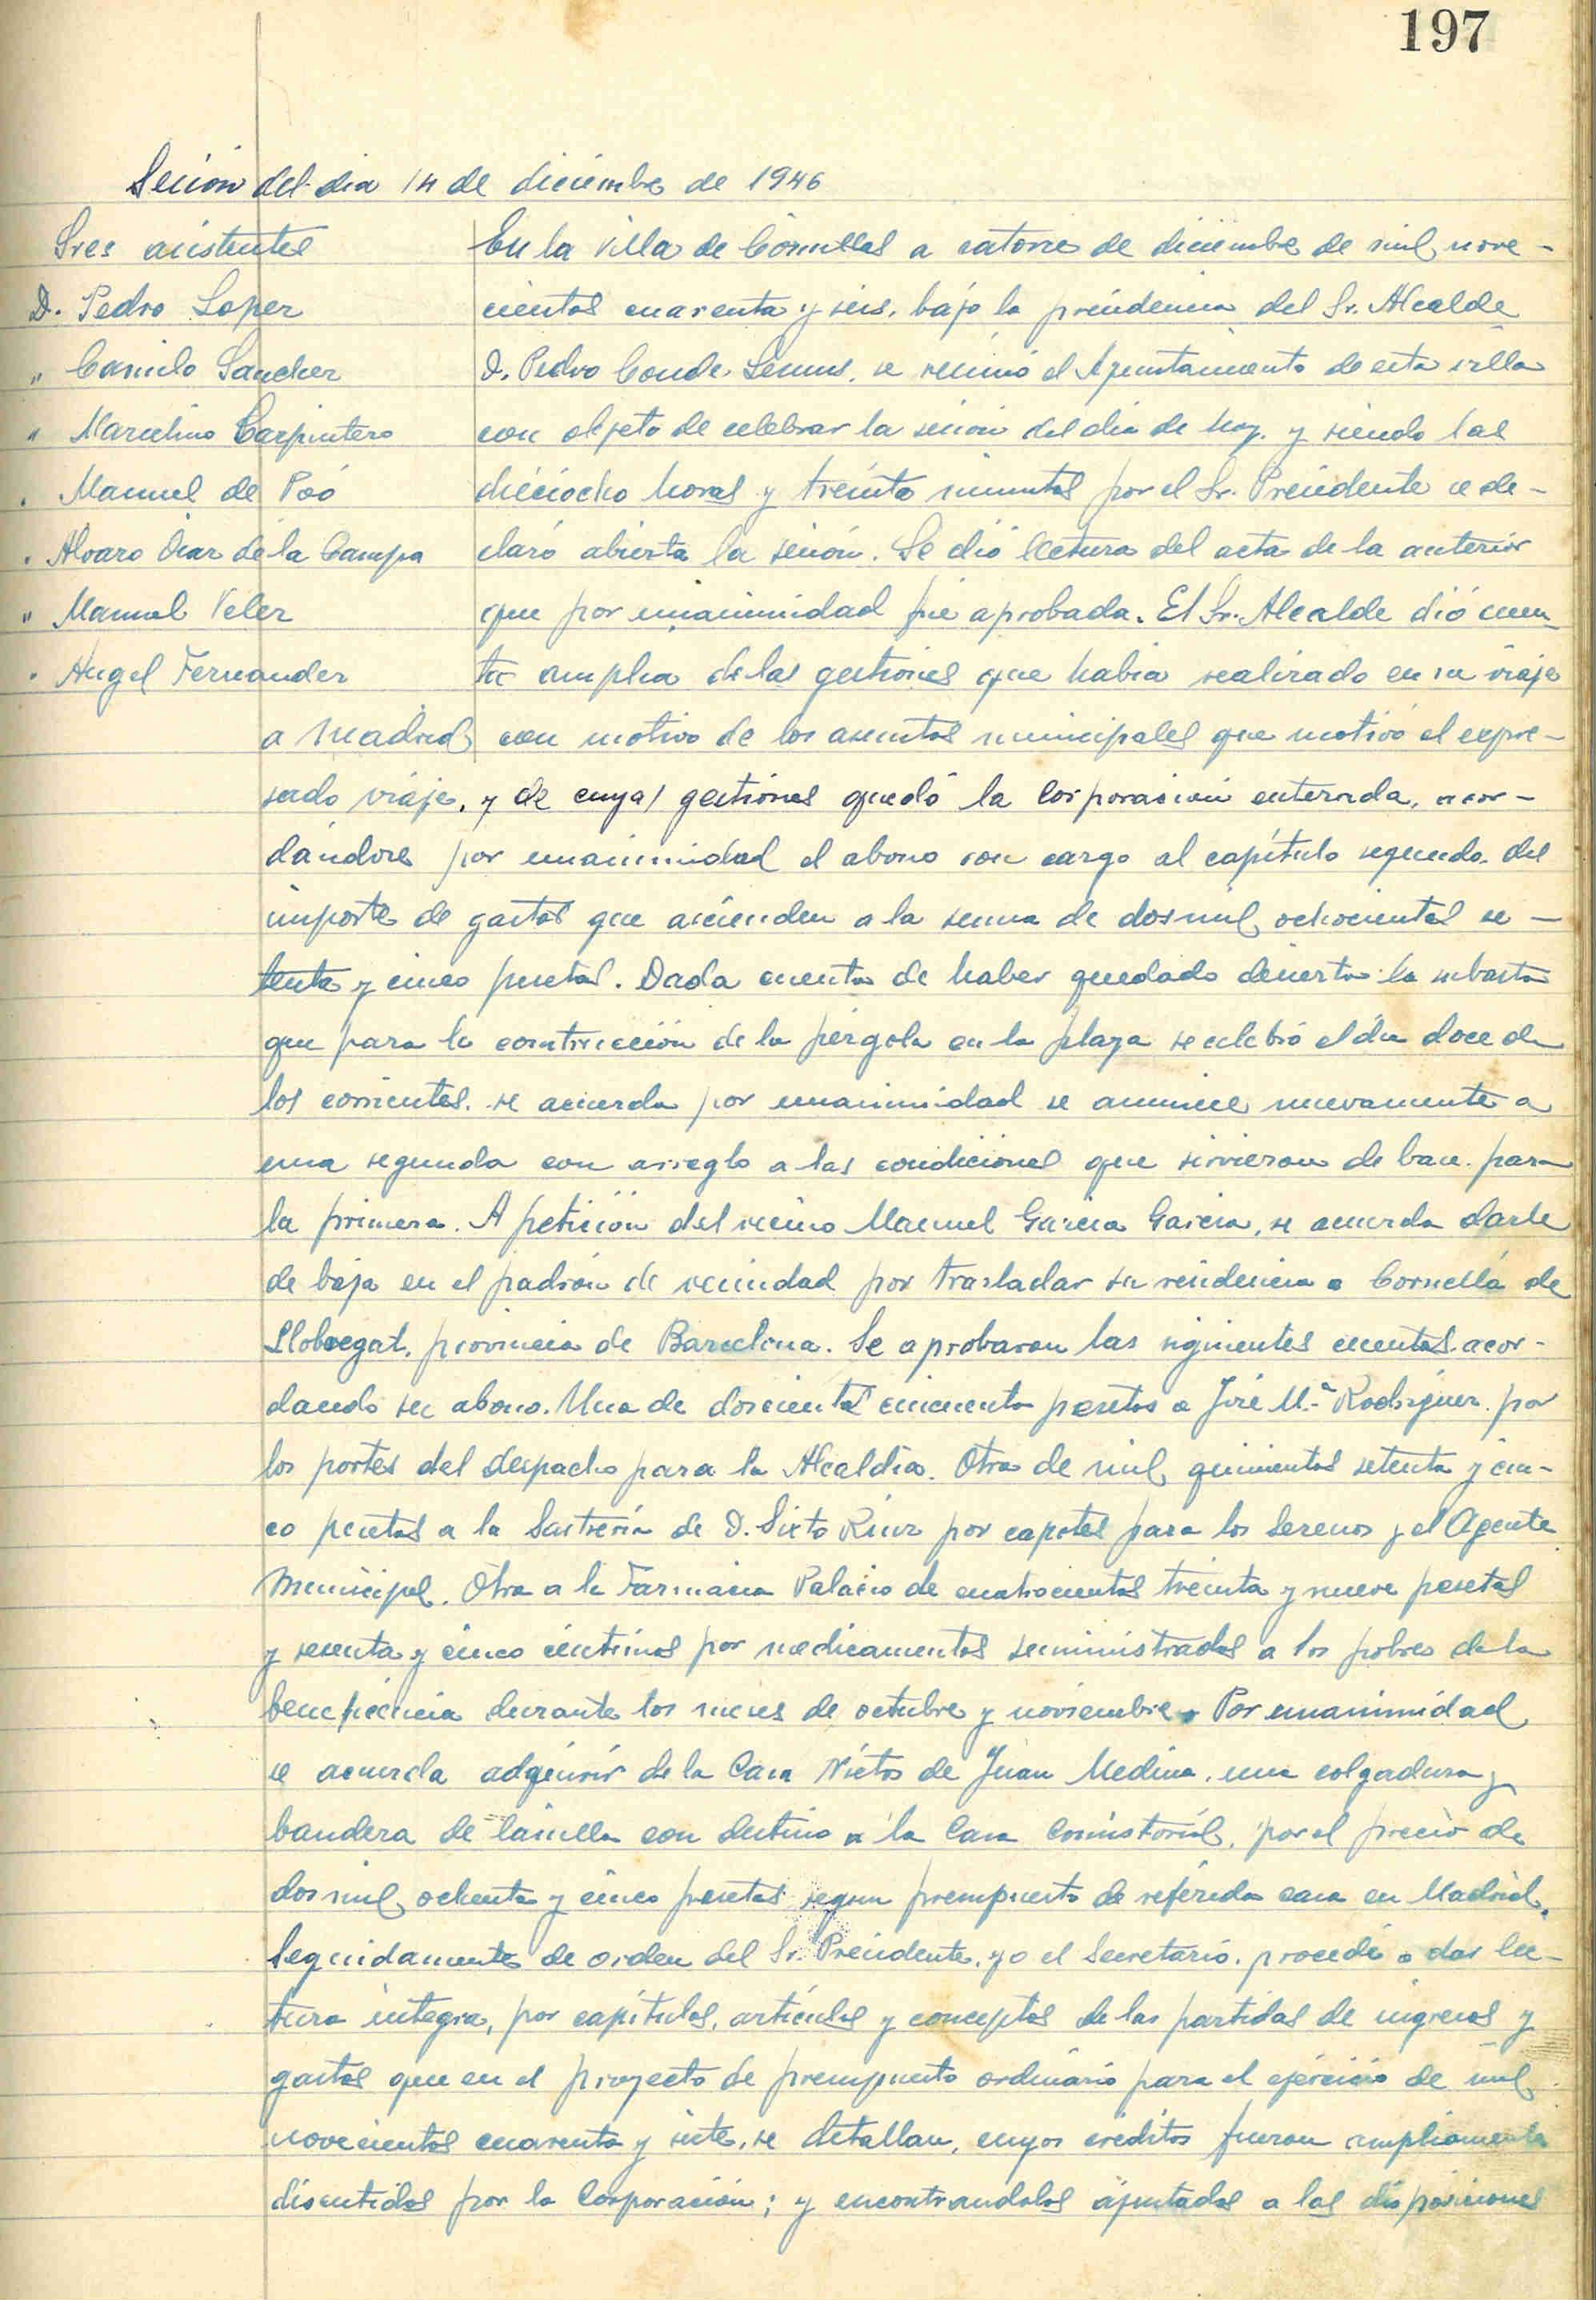 197
Sesión del dia 14 de diciembre de 1946
Sres asistentes
D. Pedro Lopez
" Casimilo Sanchez
" Marcelino Carpintero
. Manuel de Poó
. Alvaro Diaz de la Campa
" Manuel Velez
. Angel Fernandez
En la villa de Comillas a catorce de diciembre de mil nove-
cientos cuarenta y seis, bajo la presidencia del Sr. Alcalde
D. Pedro Conde Lemus, se reunió el Ayuntamiento de esta villa
con objeto de celebrar la sesión del dia de hoy, y siendo las
dieciocho horas y treinta minutos por el Sr. Presidente se de-
claró abierta la sesión. Se dió lectura del acta de la anterior
que por unanimidad fué aprobada. El Sr. Alcalde dió cuen-
ta amplia de las gestiones que habia realizado en su viaje
a Madrid con motivo de los asuntos municipales que motivó el expre-
sado viaje, y de cuyas gestiones quedó la Corporación enterada, acor-
dándose por unanimidad el abono con cargo al capítulo segundo del
importe de gastos que ascienden a la suma de dos mil ochocientas se-
tenta y cinco pesetas. Dada cuenta de haber quedado desierta la subasta
que para la construcción de la pérgola en la plaza se celebró el dia doce de
los corrientes, se acuerda por unanimidad se anuncie nuevamente a
una segunda con arreglo a las condiciones que sirvieron de base para
la primera. A petición del vecino Manuel Garcia Garcia, se acuerda darle
de baja en el padrón de vecindad por trasladar su residencia a Cornellá de
Llobregat, provincia de Barcelona. Se aprobaron las siguientes cuentas acor-
dando su abono. Una de doscientas cincuenta pesetas a José Mª Rodriguez por
los portes del despacho para la Alcaldia. Otra de mil quinientas setenta y cin-
co pesetas a la Sastrería de D. Sixto Ruiz por capotes para los Serenos y el Agente
Municipal. Otra a la Farmacia Palacio de cuatrocientas treinta y nueve pesetas
y sesenta y cinco céntimos por medicamentos suministrados a los pobres de la
beneficencia durante los meses de octubre y noviembre. Por unanimidad
se acuerda adquirir de la Casa Nietos de Juan Medina, una colgadura y
bandera de lanilla con destino a la Casa Consistorial, por el precio de
dos mil ochenta y cinco pesetas segun presupuesto de referida casa en Madrid.
Seguidamente de orden del Sr. Presidente, yo el Secretario, procedí a dar lec-
tura integra, por capítulos, articulos y conceptos de las partidas de ingresos y
gastos que en el proyecto de presupuesto ordinario para el ejercicio de mil
novecientos cuarenta y siete, se detallan, cuyos créditos fueron ampliamente
discutidos por la Corporación; y encontrandolos ajustados a las disposiciones